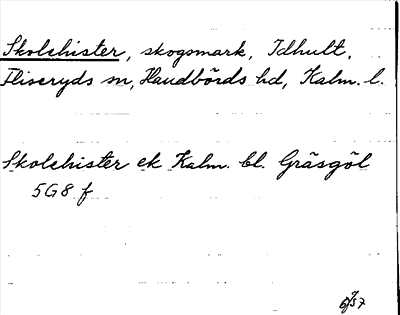 Skolehister, skogsmark, Idhult,
Fliseryds sn, Handbörds hd, Kalm. l.
Skolehister ek Kalm. bl. Gräsgöl
5G8 f